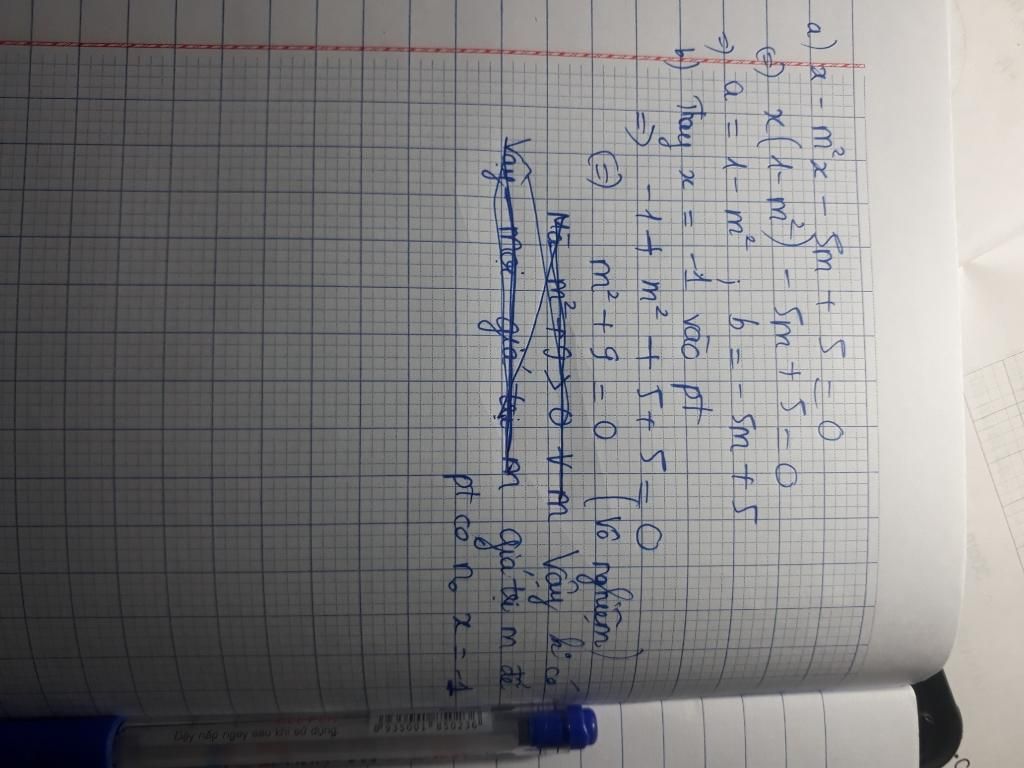 a) x - m²x - 5m + 5 = 0
(=) x(1 - m²) - 5m + 5 = 0
=) a = 1 - m² ; b = - 5m + 5
b) Thay x = -1 vào pt
=) -1 + m² + 5 + 5 = 0
(=) m² + 9 = 0 (vô nghiệm)
Mà m² + 9 > 0 ∀ m Vậy k° có
Vậy mọi giá trị m giá trị m để
pt có n₀ x = -1
Đậy nắp ngay sau khi sử dụng.
8 935001 850236